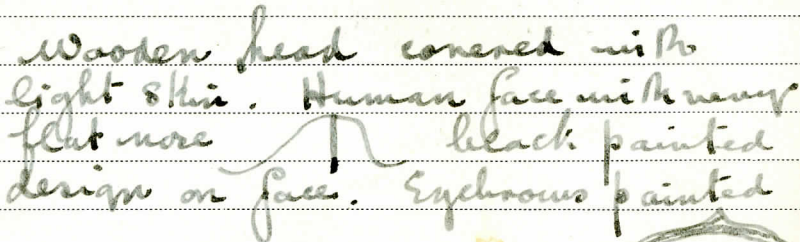 Wooden head covered with
light skin. Human face with very
flat nose black painted
design on face. Eyebrows painted